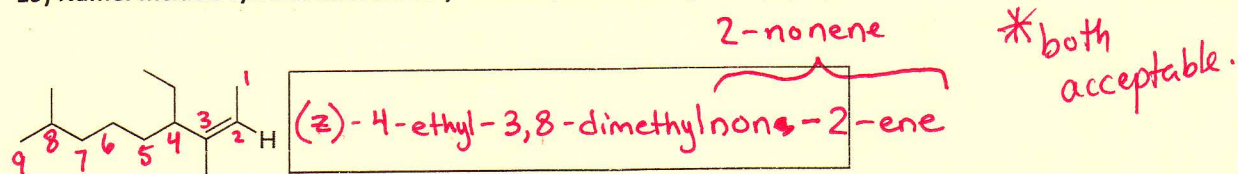 2-nonene
*both
acceptable.
(z)-4-ethyl-3,8-dimethylnon-2-ene
1
2
3
4
5
6
7
8
9
H